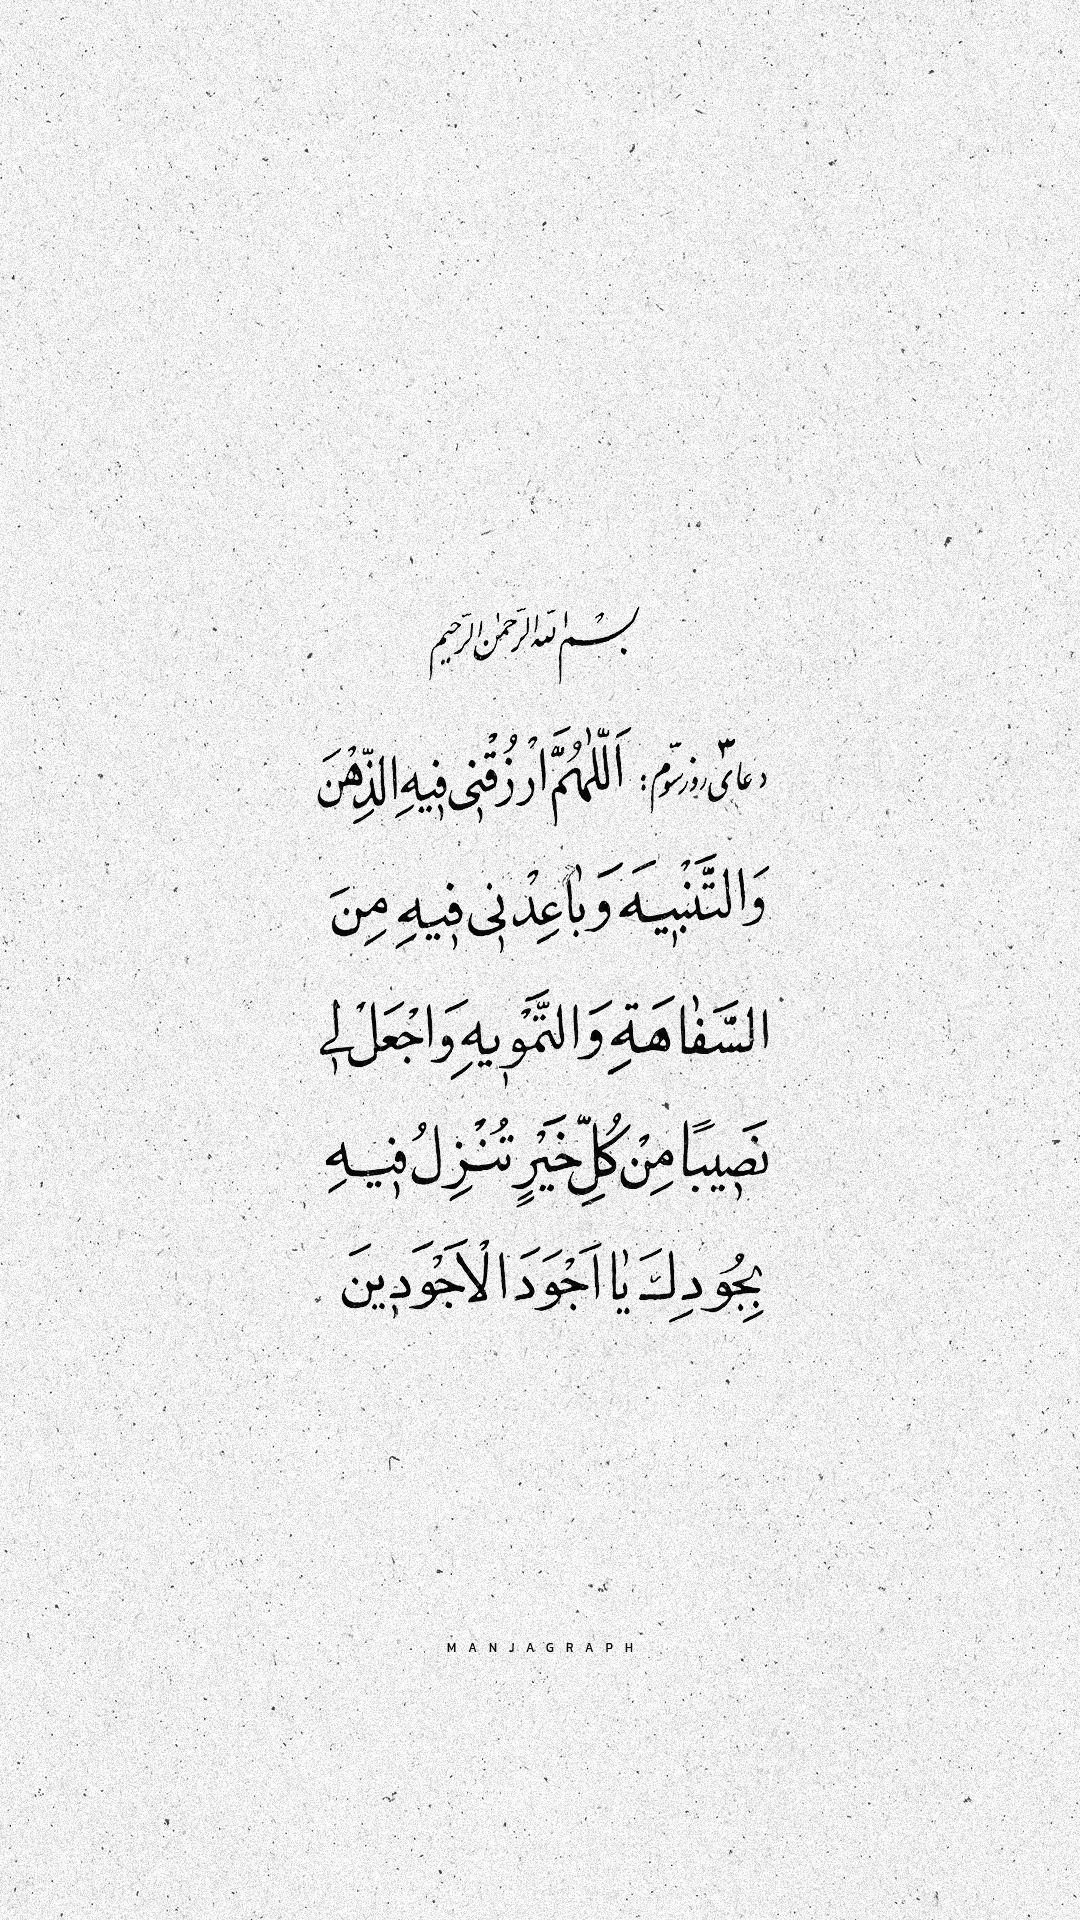 بسم الله الرحمن الرحیم
دعای روز سوّم: اَللّٰهُمَّ ارْزُقْنی فیهِ الذِّهْنَ
وَالتَّنْبیهَ وَ بٰاعِدْنی فیهِ مِنَ
السَّفٰاهَةِ وَالتَّمْویهِ وَاجْعَلْ لی
نَصیبًا مِنْ کُلِّ خَیْرٍ تُنْزِلُ فیهِ
بِجُودِكَ یٰا اَجْوَدَ الْاَجْوَدینَ
MANJAGRAPH